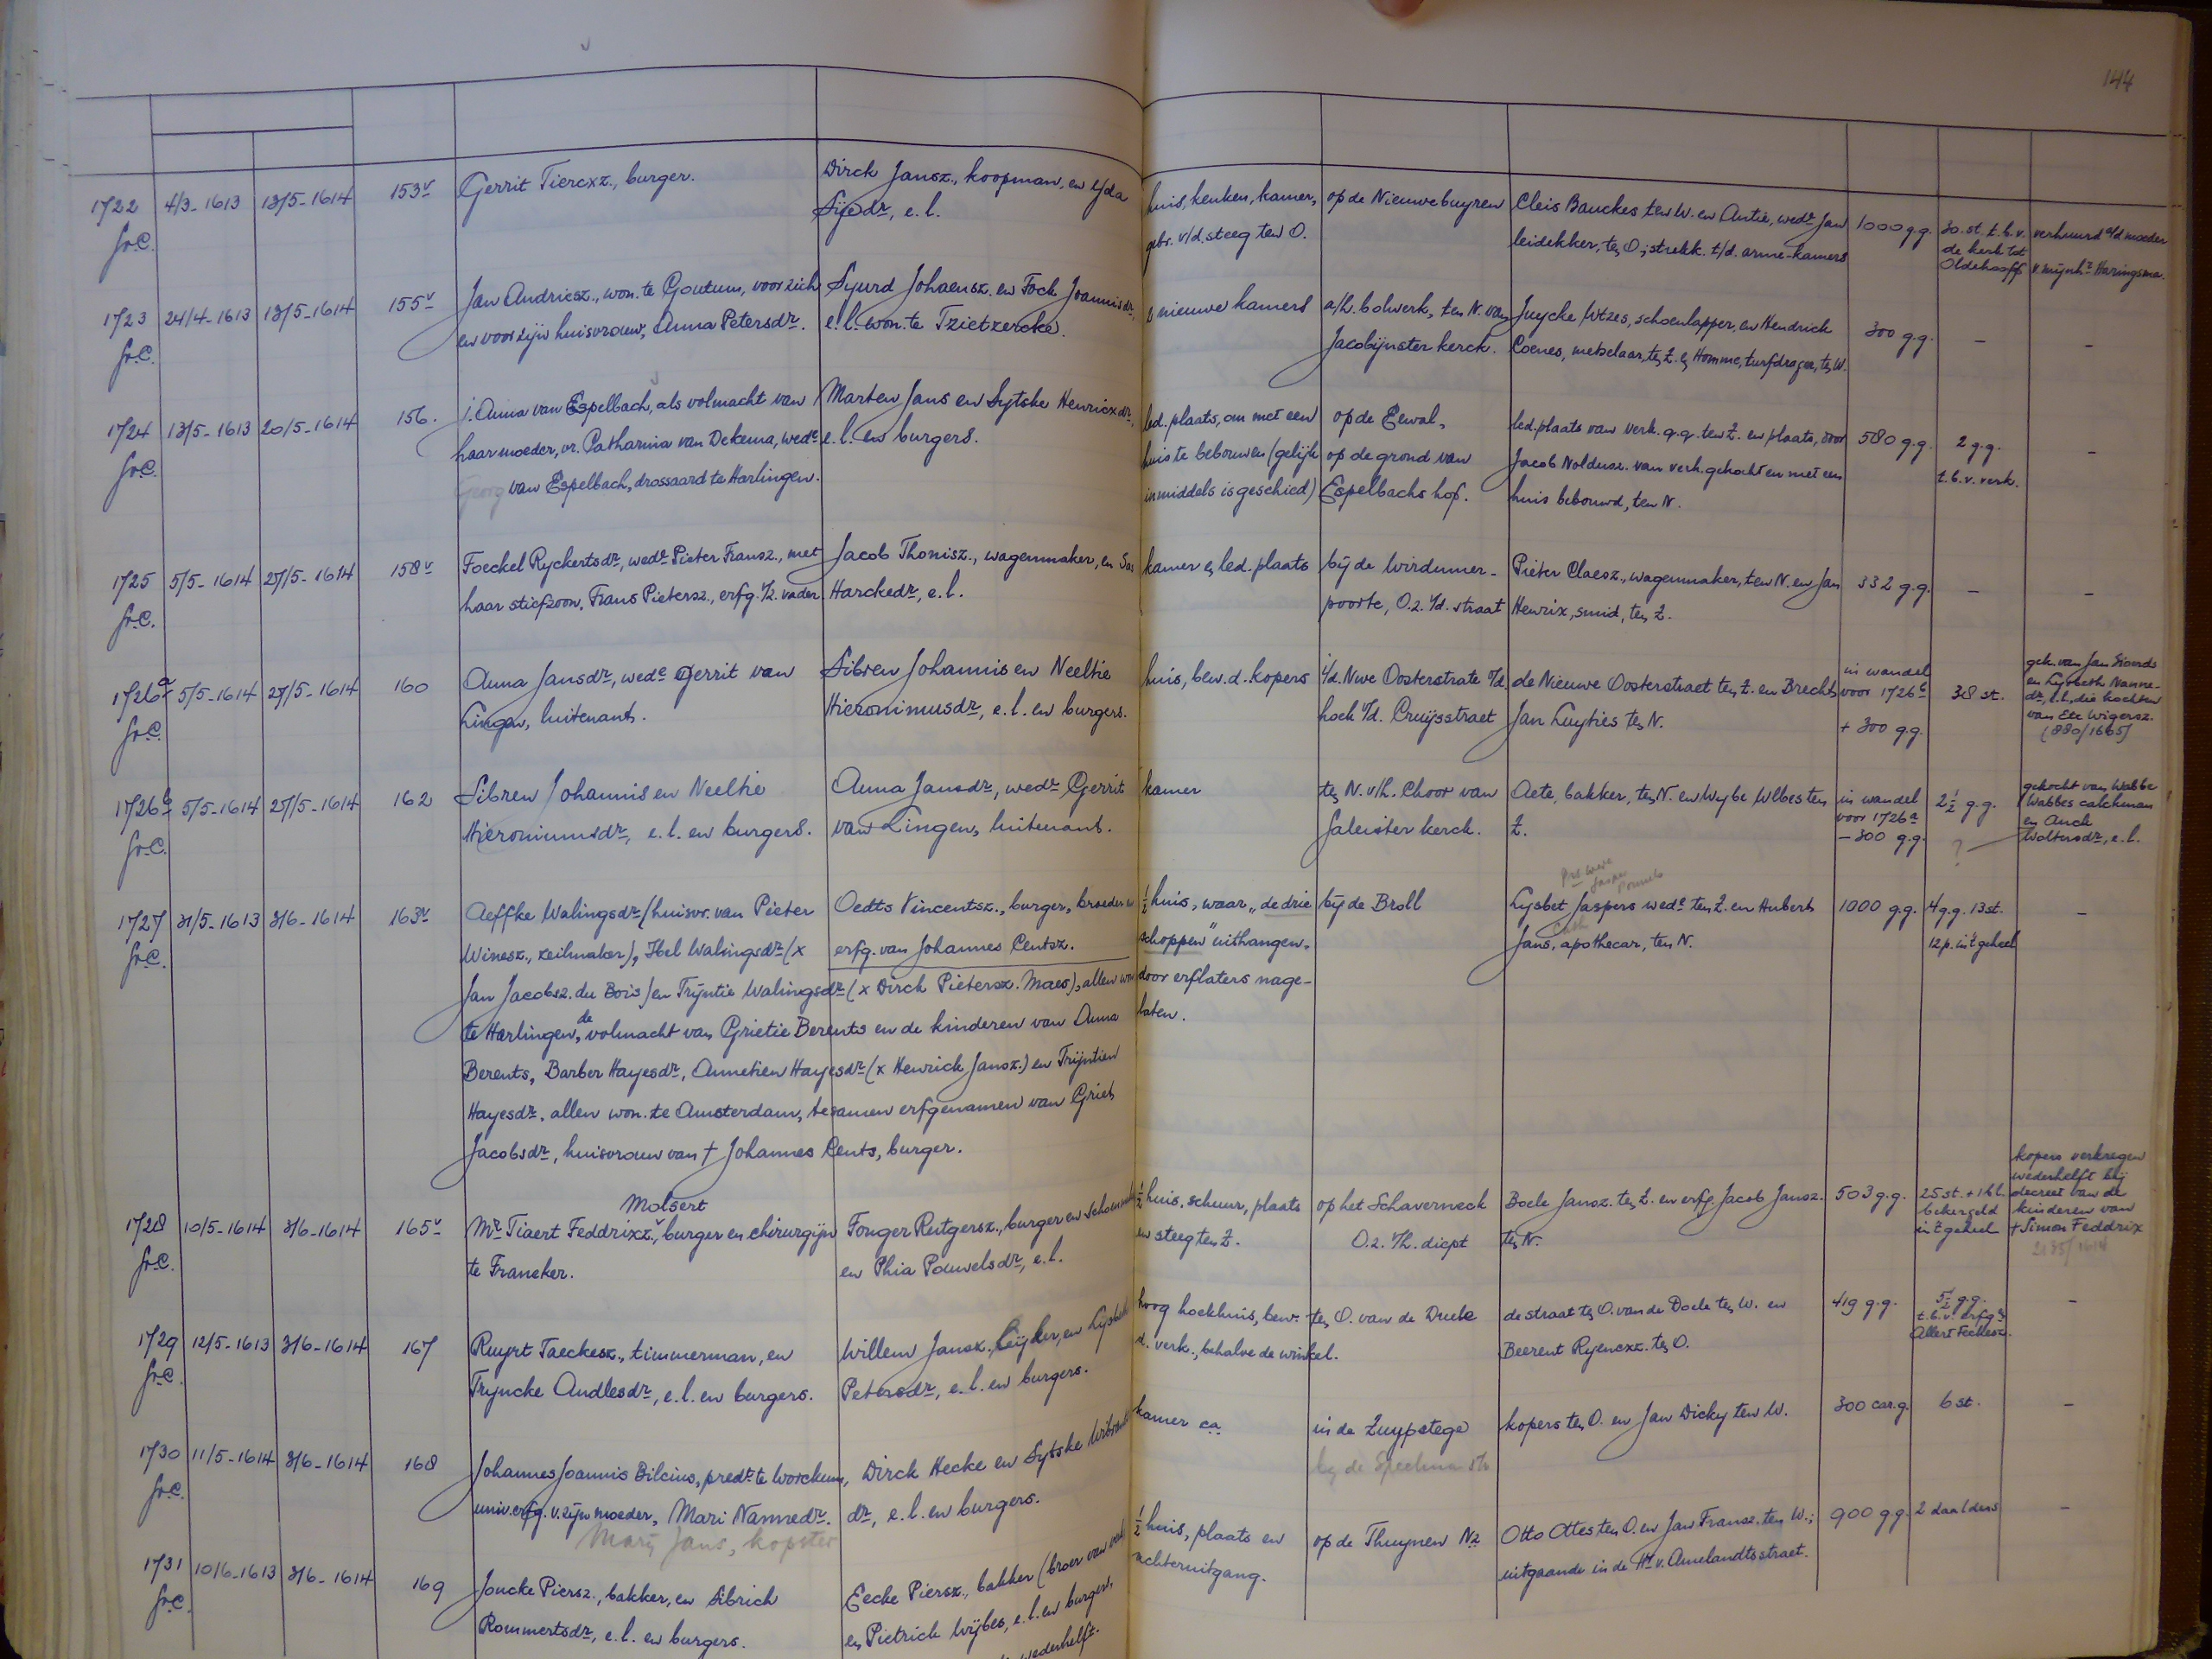 144
1722 4/3-1613 13/5-1614 153v Gerrit Tiercxz., burger. Dirck Jansz., koopman, en Ijda huis, keuken, kamer, op de Nieuwebuyren Cleis Bauckes ten W. en Antie, wedr Jan 1000 g.g. 30. st. t.b.v. verhuurd a/d moeder
fr.C. Sijedr, e.l. gebr. v/d. steeg ten O. leidekker, ten O; strekk. t/d. arme-kamers de kerk tot v. mijnhr Haringsma.
Oldehooff
1723 24/4-1613 13/5-1614 155v Jan Andriesz., won. te Goutum, voor zich Sjurd Johaensz. en Fock Joannisdr, nieuwe kamers a/h. bolwerk, ten N. van Juycke Wtzes, schoenlapper, en Hendrick 300 g.g. - -
fr.C. en voor zijn huisvrouw, Anna Petersdr. e.l. won. te Tzietzercke. Jacobijnster kerck. Coenes, metselaar, ten Z. en Homme, turfdrager, ten W.
1724 13/5-1613 20/5-1614 156. j. Anna van Espelbach, als volmacht van Marten Jans en Sytske Henricxdr, led. plaats, om met een op de Eewal, led. plaats van verk. q.q. ten Z. en plaats, door 580 g.g. 2 g.g. -
fr.C. haar moeder, vr. Catharina van Dekema, wede e.l. en burgers. huis te bebouwen (gelijk op de grond van Jacob Noldusz. van verk. gekocht en met een t.b.v. verk.
Georg van Espelbach, drossaard te Harlingen. inmiddels is geschied) Espelbachs hof. huis bebouwd, ten N.
1725 5/5-1614 27/5-1614 158v Foeckel Ryckertsdr, wede Pieter Fransz., met Jacob Thonisz., wagenmaker, en Sas kamer en led. plaats bij de Wirdumer- Pieter Claesz., wagenmaker, ten N. en Jan 332 g.g. - -
fr.C. haar stiefzoon, Frans Pietersz., erfg. v/z. vader. Harckedr, e.l. poorte, O.z. v/d. straat Henrix, smid, ten Z.
1726a 5/5-1614 27/5-1614 160 Anna Jansdr, wede Gerrit van Sibren Johannis en Neeltie huis, bew. d. kopers i/d. Nwe Oosterstrate v/d. de Nieuwe Oosterstraet ten Z. en Brecht in wandel 38 st. gek. van Jan Sioerds
fr.C. Lingen, luitenant. Hieronimusdr, e.l. en burgers. hoek v/d. Cruijsstraet Jan Luyties ten N. voor 1726b en Lysbeth Nanne-
+ 300 g.g. dr, e.l., die kochten
van Ele Wigersz.
(880/1605)
1726b 5/5-1614 27/5-1614 162 Sibren Johannis en Neeltie Anna Jansdr, wedr Gerrit kamer ten N. v/h. Choor van Aete, bakker, ten N. en Wybe Wbes ten in wandel 2½ g.g. gekocht van Wabbe
fr.C. Hieronimusdr, e.l. en burgers. van Lingen, luitenant. Saleister kerck. Z. voor 1726a Wabbes calckman
- 300 g.g. ? en Anck
Woltersdr, e.l.
1727 31/5-1613 3/6-1614 163v Aeffke Walingsdr (huisvr. van Pieter Oedts Vincentsz., burger, broeder en ½ huis, waar "de drie bij de Broll Lysbet Jaspers wede ten Z. en Hubert 1000 g.g. 4 g.g. 13 st. -
fr.C. Winesz., zeilmaker), Hel Walingsdr (x erfg. van Johannes Centsz. schoppen" uithangen, Jans, apothecar, ten N. 12 p. in 't geheel
Jan Jacobsz. du Bois) en Trijntie Walingsdr (x Dirck Pietersz. Maes), allen won. door erflaters nage-
te Harlingen, de volmacht van Grietie Berents en de kinderen van Anna laten.
Berents, Barber Hayesdr, Annetien Hayesdr (x Henrick Jansz.) en Trijntien
Hayesdr. allen won. te Amsterdam, tesamen erfgenamen van Griet
Jacobsdr, huisvrouw van † Johannes Cents, burger.
1728 10/5-1614 3/6-1614 165v Mr Tiaert Feddrixz. Molsert, burger en chirurgijn Fonger Rutgersz., burger en schoenm ½ huis, schuur, plaats op het Schaverneck Boele Jansz. ten Z. en erfg. Jacob Jansz. 503 g.g. 25 st. + 1 bl. kopers verkregen
fr.C. te Franeker. en Phia Pouwelsdr, e.l. en steeg ten Z. O.z. v/h. diept ten N. bekergeld wederhelft bij
in 't geheel decreet van de
kinderen van
† Simon Feddrix
2135/1614
1729 12/5-1613 3/6-1614 167 Ruyrt Taeckesz., timmerman, en Willem Jansz. Cuijper, en Lijsbeth hoog hoekhuis, bew. ten O. van de Duele de straat ten O. van de Doele ten W. en 419 g.g. 5½ g.g. -
fr.C. Tryncke Andlesdr, e.l. en burgers. Petersdr, e.l. en burgers. d. verk., behalve de winkel. Beerent Ryencxz. ten O. t.b.v. erfgn
Allert Feckesz.
1730 11/5-1614 3/6-1614 168 Johannes Joannis Bilcius, predr. te Worckum, Dirck Hecke en Sytske kamer ca. in de Zuypstege kopers ten O. en Jan Dicky ten W. 300 car.g. 6 st. -
fr.C. univ. erfg. v. zijn moeder, Mari Nannedr. dr, e.l. en burgers. bij de Speelman str
Marij Jans, kopster
1731 10/6-1613 3/6-1614 169 Joucke Piersz., bakker, en Sibrich Eecke Piersz., bakker (broer van verk ½ huis, plaats en op de Thuynen Nz Otto Ottes ten O. en Jan Fransz. ten W.; 900 g.g. 2 daalders -
fr.C. Rommertsdr, e.l. en burgers. en Pietrick Wijbes, e.l. en burgers, achteruitgang. uitgaande in de Hr v. Amelandtsstraet.
wederhelft.